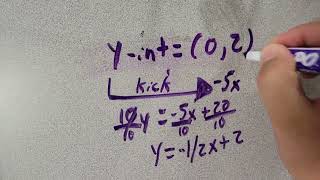 y-int = (0,2)
kick -5x
10/10 y = -5x/10 + 20/10
y = -1/2x + 2